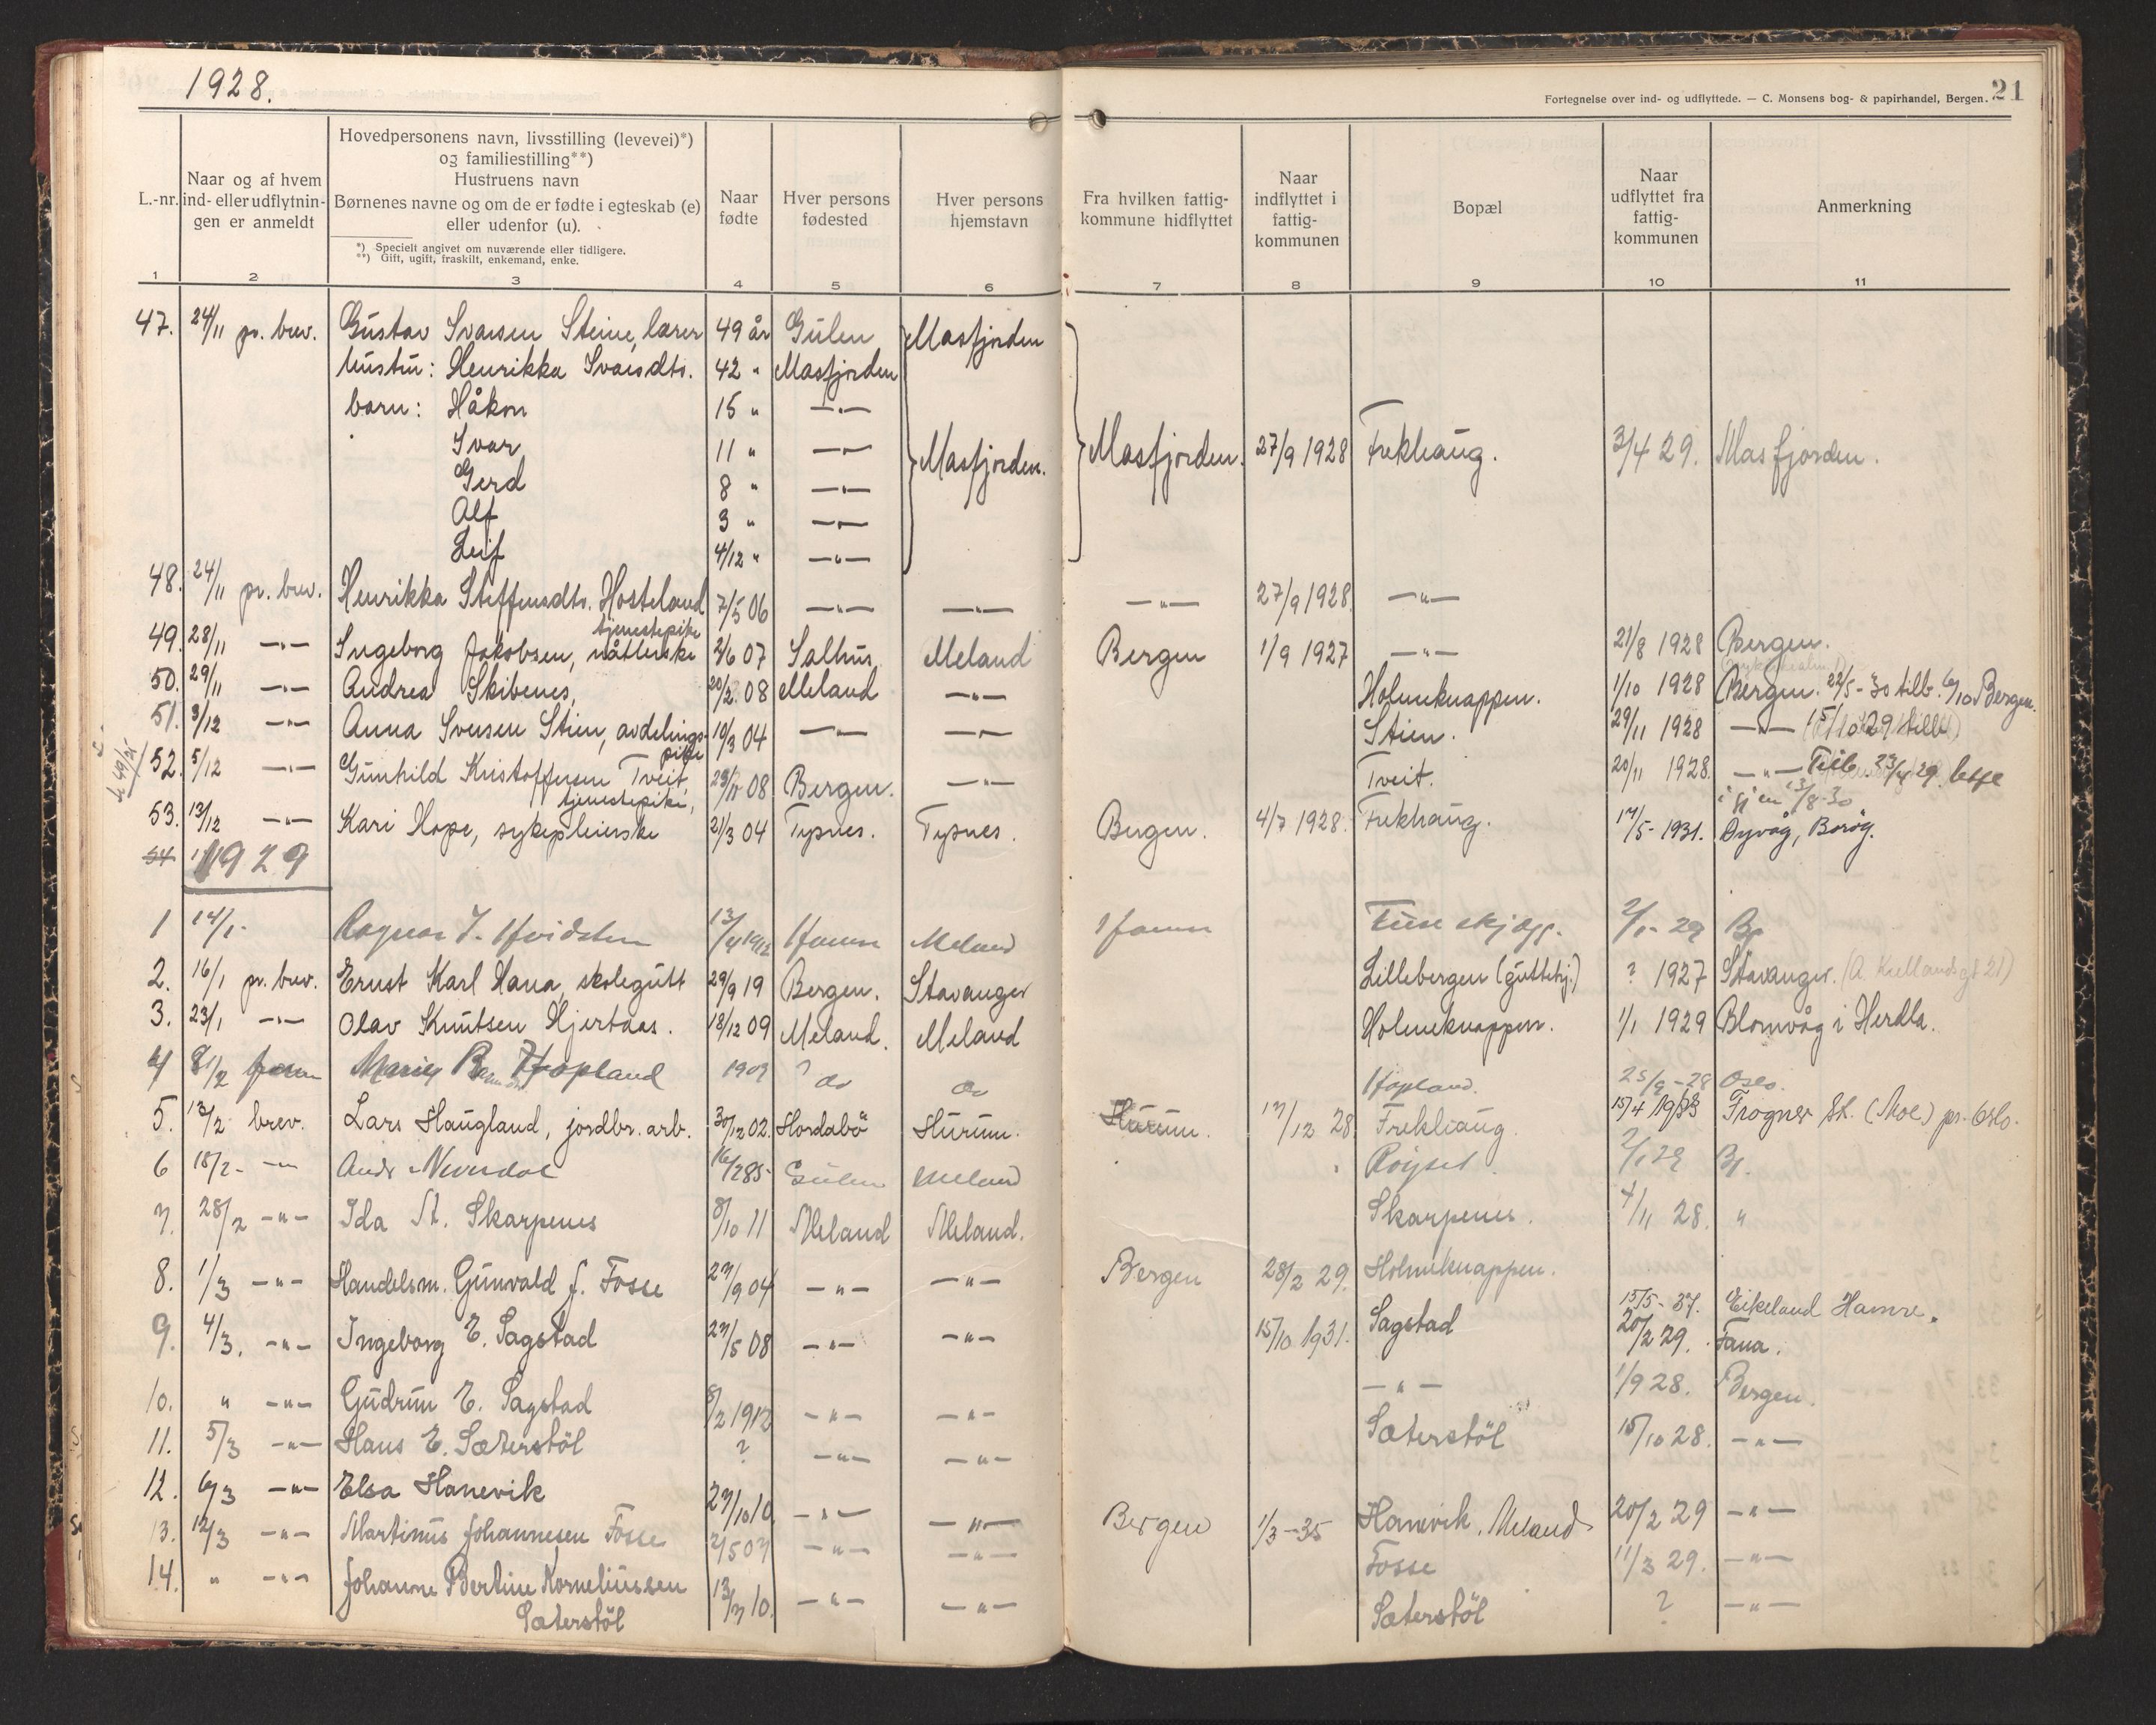 1928.
Fortegnelse over ind- og udflyttede. — C. Monsens bog- & papirhandel, Bergen. 21
L.-nr. | Naar og af hvem ind- eller udflytningen er anmeldt | Hovedpersonens navn, livsstilling (levevei)*) og familiestilling**) Hustruens navn Børnenes navne og om de er fødte i egteskab (e) eller udenfor (u). | Naar fødte | Hver persons fødested | Hver persons hjemstavn | Fra hvilken fattig-kommune hidflyttet | Naar indflyttet i fattig-kommunen | Bopæl | Naar udflyttet fra fattig-kommunen | Anmerkning
*) Specielt angivet om nuværende eller tidligere.
**) Gift, ugift, fraskilt, enkemand, enke.
1 2 3 4 5 6 7 8 9 10 11
47. 24/11 pr. brev. Gustav Ivarsen Steine, lærer 49 år Gulen Masfjorden
hustru: Henrikka Ivarsdtr. 42 " Masfjorden
barn: Håkon 15 " —"—
Ivar 11 " —"— Masfjorden. Masfjorden. 27/9 1928 Frekhaug. 3/4 29. Masfjorden.
Gerd 8 " —"—
Alf 3 " —"—
Leif 4/12 " —"—
48. 24/11 pr. brev. Henrikka Steffensdtr. Hosteland 7/5 06 —"— —"— —"— 27/9 1928. —"—
tjenestepike
49. 28/11 —"— Ingeborg Jakobsen, 2/6 07 Salhus Meland Bergen 1/9 1927 —"— 21/8 1928 Bergen.
50. 29/11 —"— Andrea Skibenes, 20/2 08 Meland —"— Holmeknappen. 1/10 1928 Bergen. 22/5-30 tilb. 6/10 Bergen.
51. 3/12 —"— Anna Svensen Stien, avdelings- 19/3 04 —"— —"— Stien. 29/11 1928 —"— 15/10 29 tilb
pike
52. 5/12 —"— Gunhild Kristoffersen Tveit, 23/11 08 Bergen. —"— Tveit. 20/11 1928. —"— Tilb. 23/4 29.
tjenestepike, igjen 13/8-30
53. 13/12 —"— Kari Hope, sykepleierske 21/3 04 Tysnes. Tysnes. Bergen. 4/7 1928. Frekhaug. 14/5-1931. Dyvåg, Borøy.
54 1929
1 14/1- Ragnar J. Hvidsten 13/4 1912 Hamre Meland Hamre skjær. 2/1-29 Bg
2. 16/1 pr. brev. Ernst Karl Hana, skolegutt 29/9 19 Bergen. Stavanger Lillebergen (guttehj.) ? 1927 Stavanger. (A. Kiellandsgt 21)
3. 23/1 —"— Olav Knutsen Hjertaas. 18/12 09 Meland. Meland Holmeknappen. 1/1 1929 Blomvåg i Herdla.
4 8/2 Marie Hopland 1909 ? do do Hopland. 25/9-28 Oslo.
5. 13/2 brev. Lars Haugland, jordbr. arb. 30/12 02. Hordabö Hurum. Hurum. 17/12 28 Frekhaug. 15/4 1933 Frogner St. (Moe) pr. Oslo.
6 18/2- —"— Andr. Neverdal 16/2 85- Gulen Meland Röyset 2/1 29 B.
7. 28/2 —"— Ida M. Skarpenes 8/10 11 Meland Meland. Skarpenes. 4/11 28. "
8. 1/3 —"— Handelsm. Gunvald J. Fosse 27/9 04 —"— —"— Bergen 28/2 29. Holmeknappen. 15/5-37. Eikeland Hamre.
9. 4/3. —"— Ingeborg E. Sagstad 27/5 08 —"— —"— 15/10 1931. Sagstad 20/2 29. Fana.
10. " —"— Gudrun E. Sagstad 8/2 1912 —"— —"— —"— 1/9 28. Bergen.
11. 5/3 —"— Hans E. Sæterstöl ? —"— —"— Sæterstöl 15/10 28. —"—
12. 6/3 —"— Elsa Hanevik 27/10 10. —"— —"— Bergen 1/3-35 Hanevik, Meland 20/2 29 —"—
13. 12/3 —"— Martinus Johannesen Fosse 2/5 07 —"— —"— Fosse 11/3 29. —"—
14. " —"— Johanne Bertine Korneliussen 13/7 10. —"— —"— Sæterstöl ? —"—
Sæterstöl